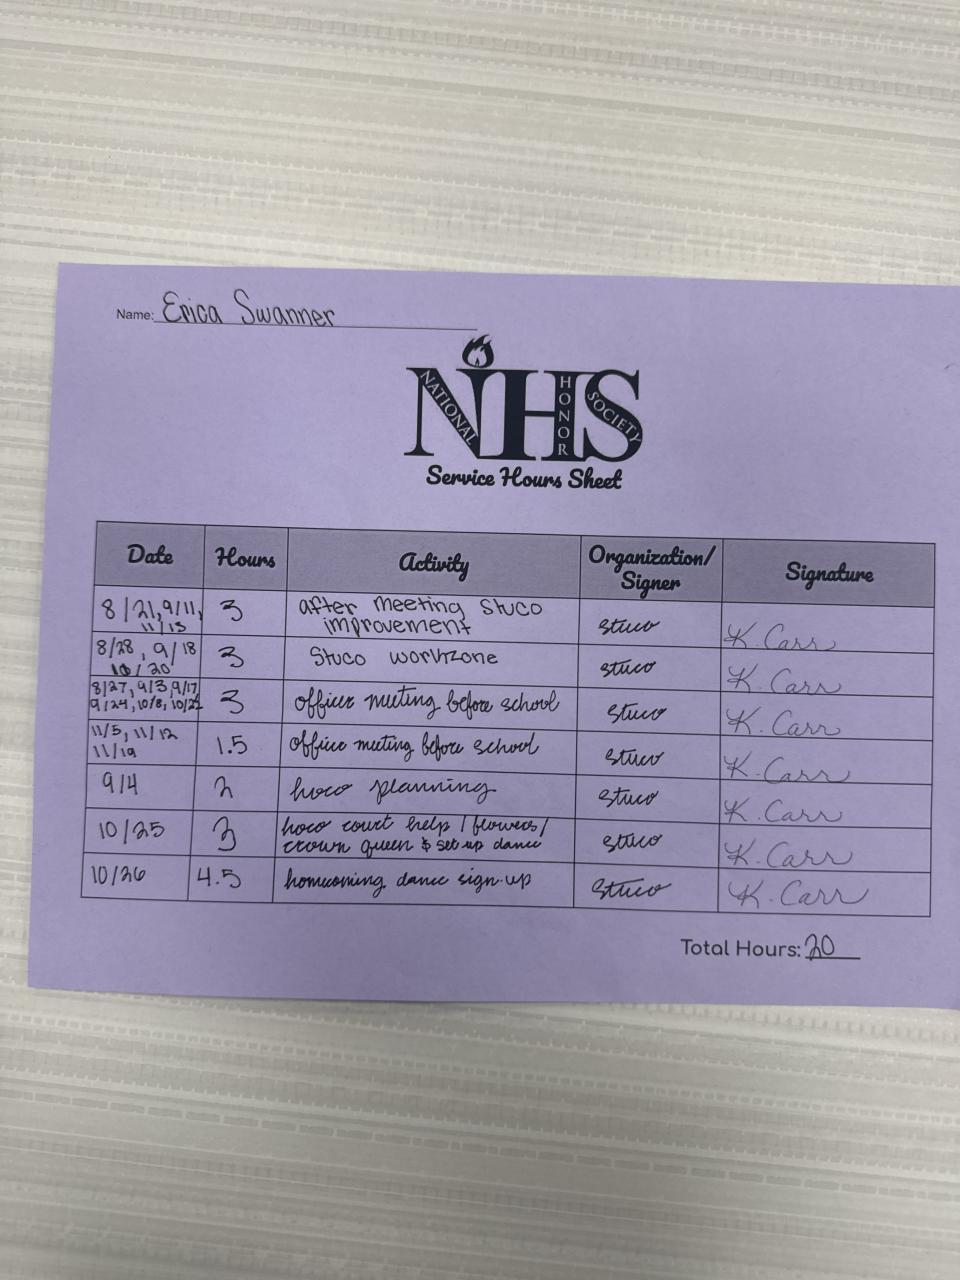 Name: Erica Swanner
NATIONAL HONOR SOCIETY
NHS
Service Hours Sheet
Date Hours Activity Organization/ Signer Signature
8/21, 9/11, 11/13 3 after meeting stuco improvement stuco K. Carr
8/28, 9/18 10/20 3 Stuco workzone stuco K. Carr
8/27, 9/3, 9/17 9/24, 10/8, 10/22 3 officer meeting before school stuco K. Carr
11/5, 11/12 11/19 1.5 office meeting before school stuco K. Carr
9/4 2 hoco planning stuco K. Carr
10/25 3 hoco court help / flowers/ crown queen & set up dance stuco K. Carr
10/26 4.5 homecoming dance sign-up stuco K. Carr
Total Hours: 20